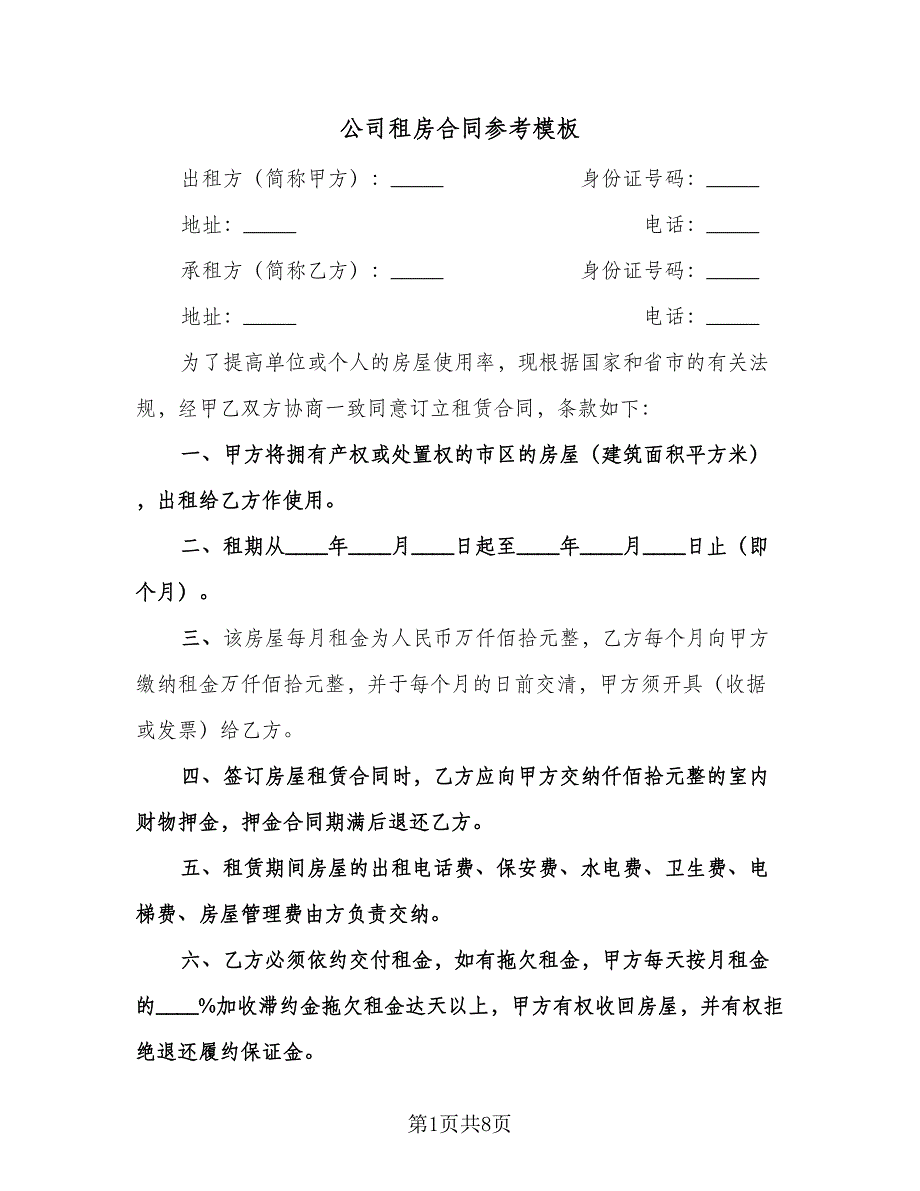 公司租房合同参考模板
出租方（简称甲方）：_____ 身份证号码：_____
地址：_____ 电话：_____
承租方（简称乙方）：_____ 身份证号码：_____
地址：_____ 电话：_____
为了提高单位或个人的房屋使用率，现根据国家和省市的有关法
规，经甲乙双方协商一致同意订立租赁合同，条款如下：
一、甲方将拥有产权或处置权的市区的房屋（建筑面积平方米）
，出租给乙方作使用。
二、租期从____年____月____日起至____年____月____日止（即
个月）。
三、该房屋每月租金为人民币万仟佰拾元整，乙方每个月向甲方
缴纳租金万仟佰拾元整，并于每个月的日前交清，甲方须开具（收据
或发票）给乙方。
四、签订房屋租赁合同时，乙方应向甲方交纳仟佰拾元整的室内
财物押金，押金合同期满后退还乙方。
五、租赁期间房屋的出租电话费、保安费、水电费、卫生费、电
梯费、房屋管理费由方负责交纳。
六、乙方必须依约交付租金，如有拖欠租金，甲方每天按月租金
的____%加收滞约金拖欠租金达天以上，甲方有权收回房屋，并有权拒
绝退还履约保证金。
第1页共8页